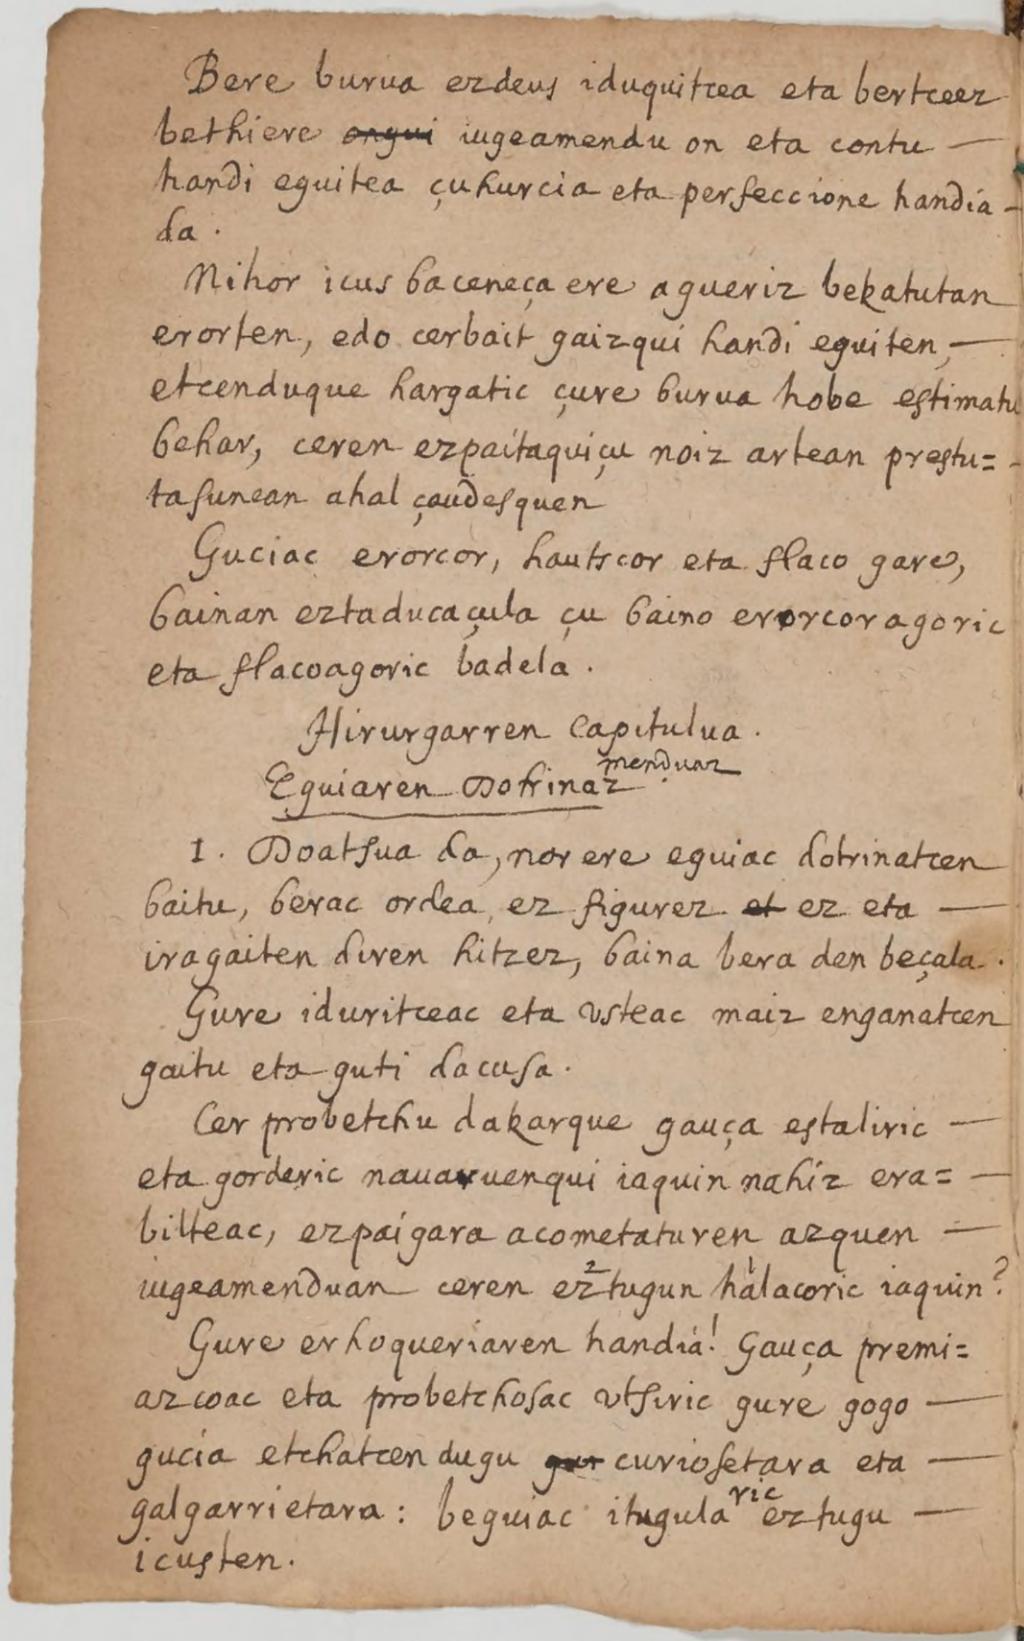 Bere burua ezdeus iduquitcea eta bertceez
bethiere ongui iugeamendu on eta contu —
handi eguitea çuhurcia eta perfeccione handia -
da .
Nihor icus baceneça ere agueriz bekatutan
erorten, edo cerbait gaizqui handi eguiten, —
etcenduque hargatic çure burua hobe estimatu
behar, ceren ezpaitaquiçu noiz artean prestu= -
tasunean ahal çaudesquen
Guciac erorcor, hautscor eta flaco gare,
bainan eztaducaçula çu baino erorcoragoric
eta flacoagoric badela .
Hirurgarren Capitulua .
menduaz
Eguiaren Dotrinaz
1 . Doatsua da, nor ere eguiac dotrinatcen
baitu, berac ordea, ez figurez et ez eta —
iragaiten diren hitzez, baina bera den beçala .
Gure iduritceac eta vsteac maiz enganatcen
gaitu eta guti dacusa .
Cer probetchu dakarque gauça estaliric —
eta gorderic nauaruenqui iaquin nahiz era= —
bilteac, ezpaigara acometaturen azquen —
iugeamenduan ceren ez2tugun ha1lacoric iaquin?
Gure erhoqueriaren handia! Gauça premi=
azcoac eta probetchosac vtsiric gure gogo —
gucia etchatcen dugu gur curiosetara eta —
galgarrietara : beguiac itugularic eztugu —
icusten .